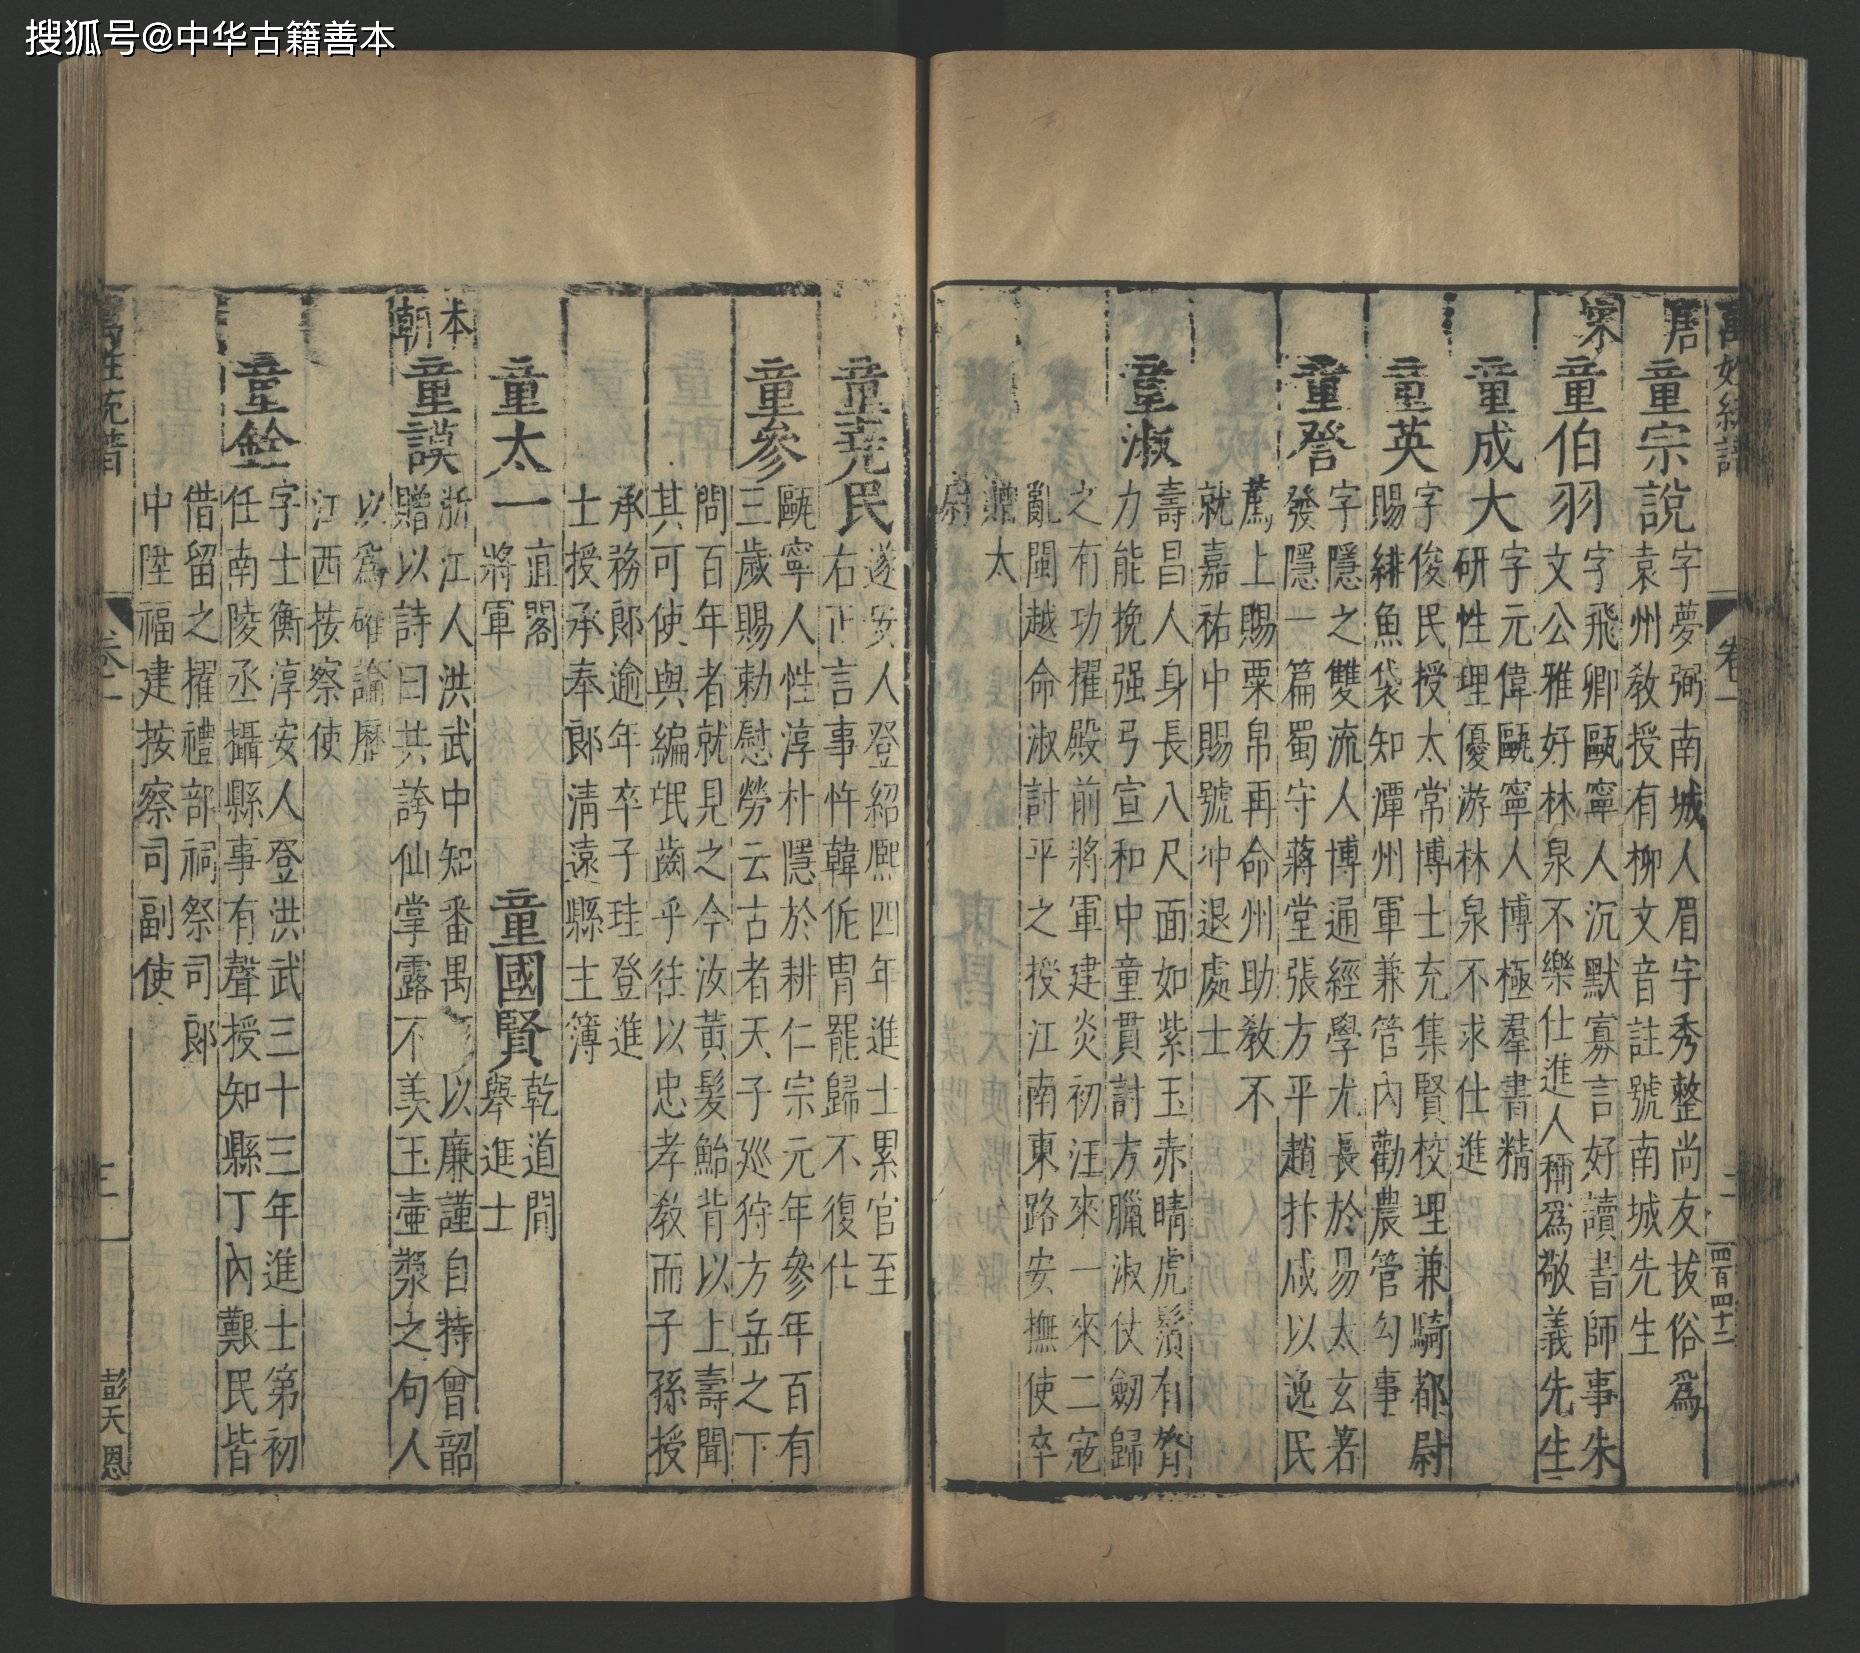 搜狐号@中华古籍善本
萬姓統譜 卷一 二 四百四十二
唐
童宗說
字夢弼南城人眉宇秀整尚友拔俗爲
袁州教授有柳文音註號南城先生
宋
童伯羽
字飛卿甌寧人沉默寡言好讀書師事朱
文公雅好林泉不樂仕進人稱爲敬義先生
童成大
字元偉甌寧人博極羣書精
研性理優游林泉不求仕進
童英
字俊民授太常博士充集賢校理兼騎都尉
賜緋魚袋知潭州軍兼管內勸農管勾事
童詧
字隱之雙流人博通經學尤長於易太玄著
發隱一篇蜀守蔣堂張方平趙抃咸以逸民
薦上賜粟帛再命州助教不
就嘉祐中賜號冲退處士
童淑
壽昌人身長八尺面如紫玉赤睛虎鬚有膂
力能挽强弓宣和中童貫討方臘淑仗劒歸
之有功擢殿前將軍建炎初汪來一來二寇
亂閩越命淑討平之授江南東路安撫使卒
贈太
尉
童堯民
遂安人登紹熙四年進士累官至
右正言事忤韓侂冑罷歸不復仕
童參
甌寧人性淳朴隱於耕仁宗元年參年百有
三歲賜勅慰勞云古者天子廵狩方岳之下
問百年者就見之今汝黃髮鮐背以上壽聞
其可使與編氓齒乎往以忠孝教而子孫授
承務郎逾年卒子珪登進
士授承奉郎淸遠縣主簿
童太一
直閣
將軍
童國賢
乾道間
舉進士
本朝
童謨
浙江人洪武中知番禺以廉謹自持曾韶
贈以詩曰共誇仙掌露不美玉壷漿之句人
以爲確論歷
江西按察使
童銓
字士衡淳安人登洪武三十三年進士第初
任南陵丞攝縣事有聲授知縣丁內艱民皆
借留之擢禮部祠祭司郎
中陞福建按察司副使
萬姓統譜 卷一 三 彭天恩